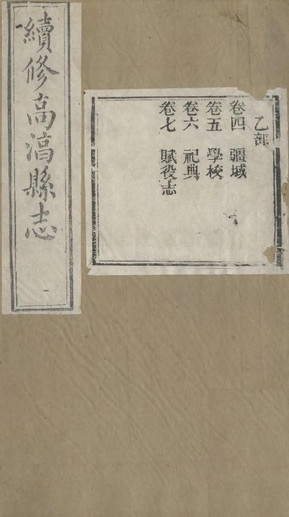 續修高淳縣志
乙部
卷四 疆域
卷五 學校
卷六 祀典
卷七 賦役志